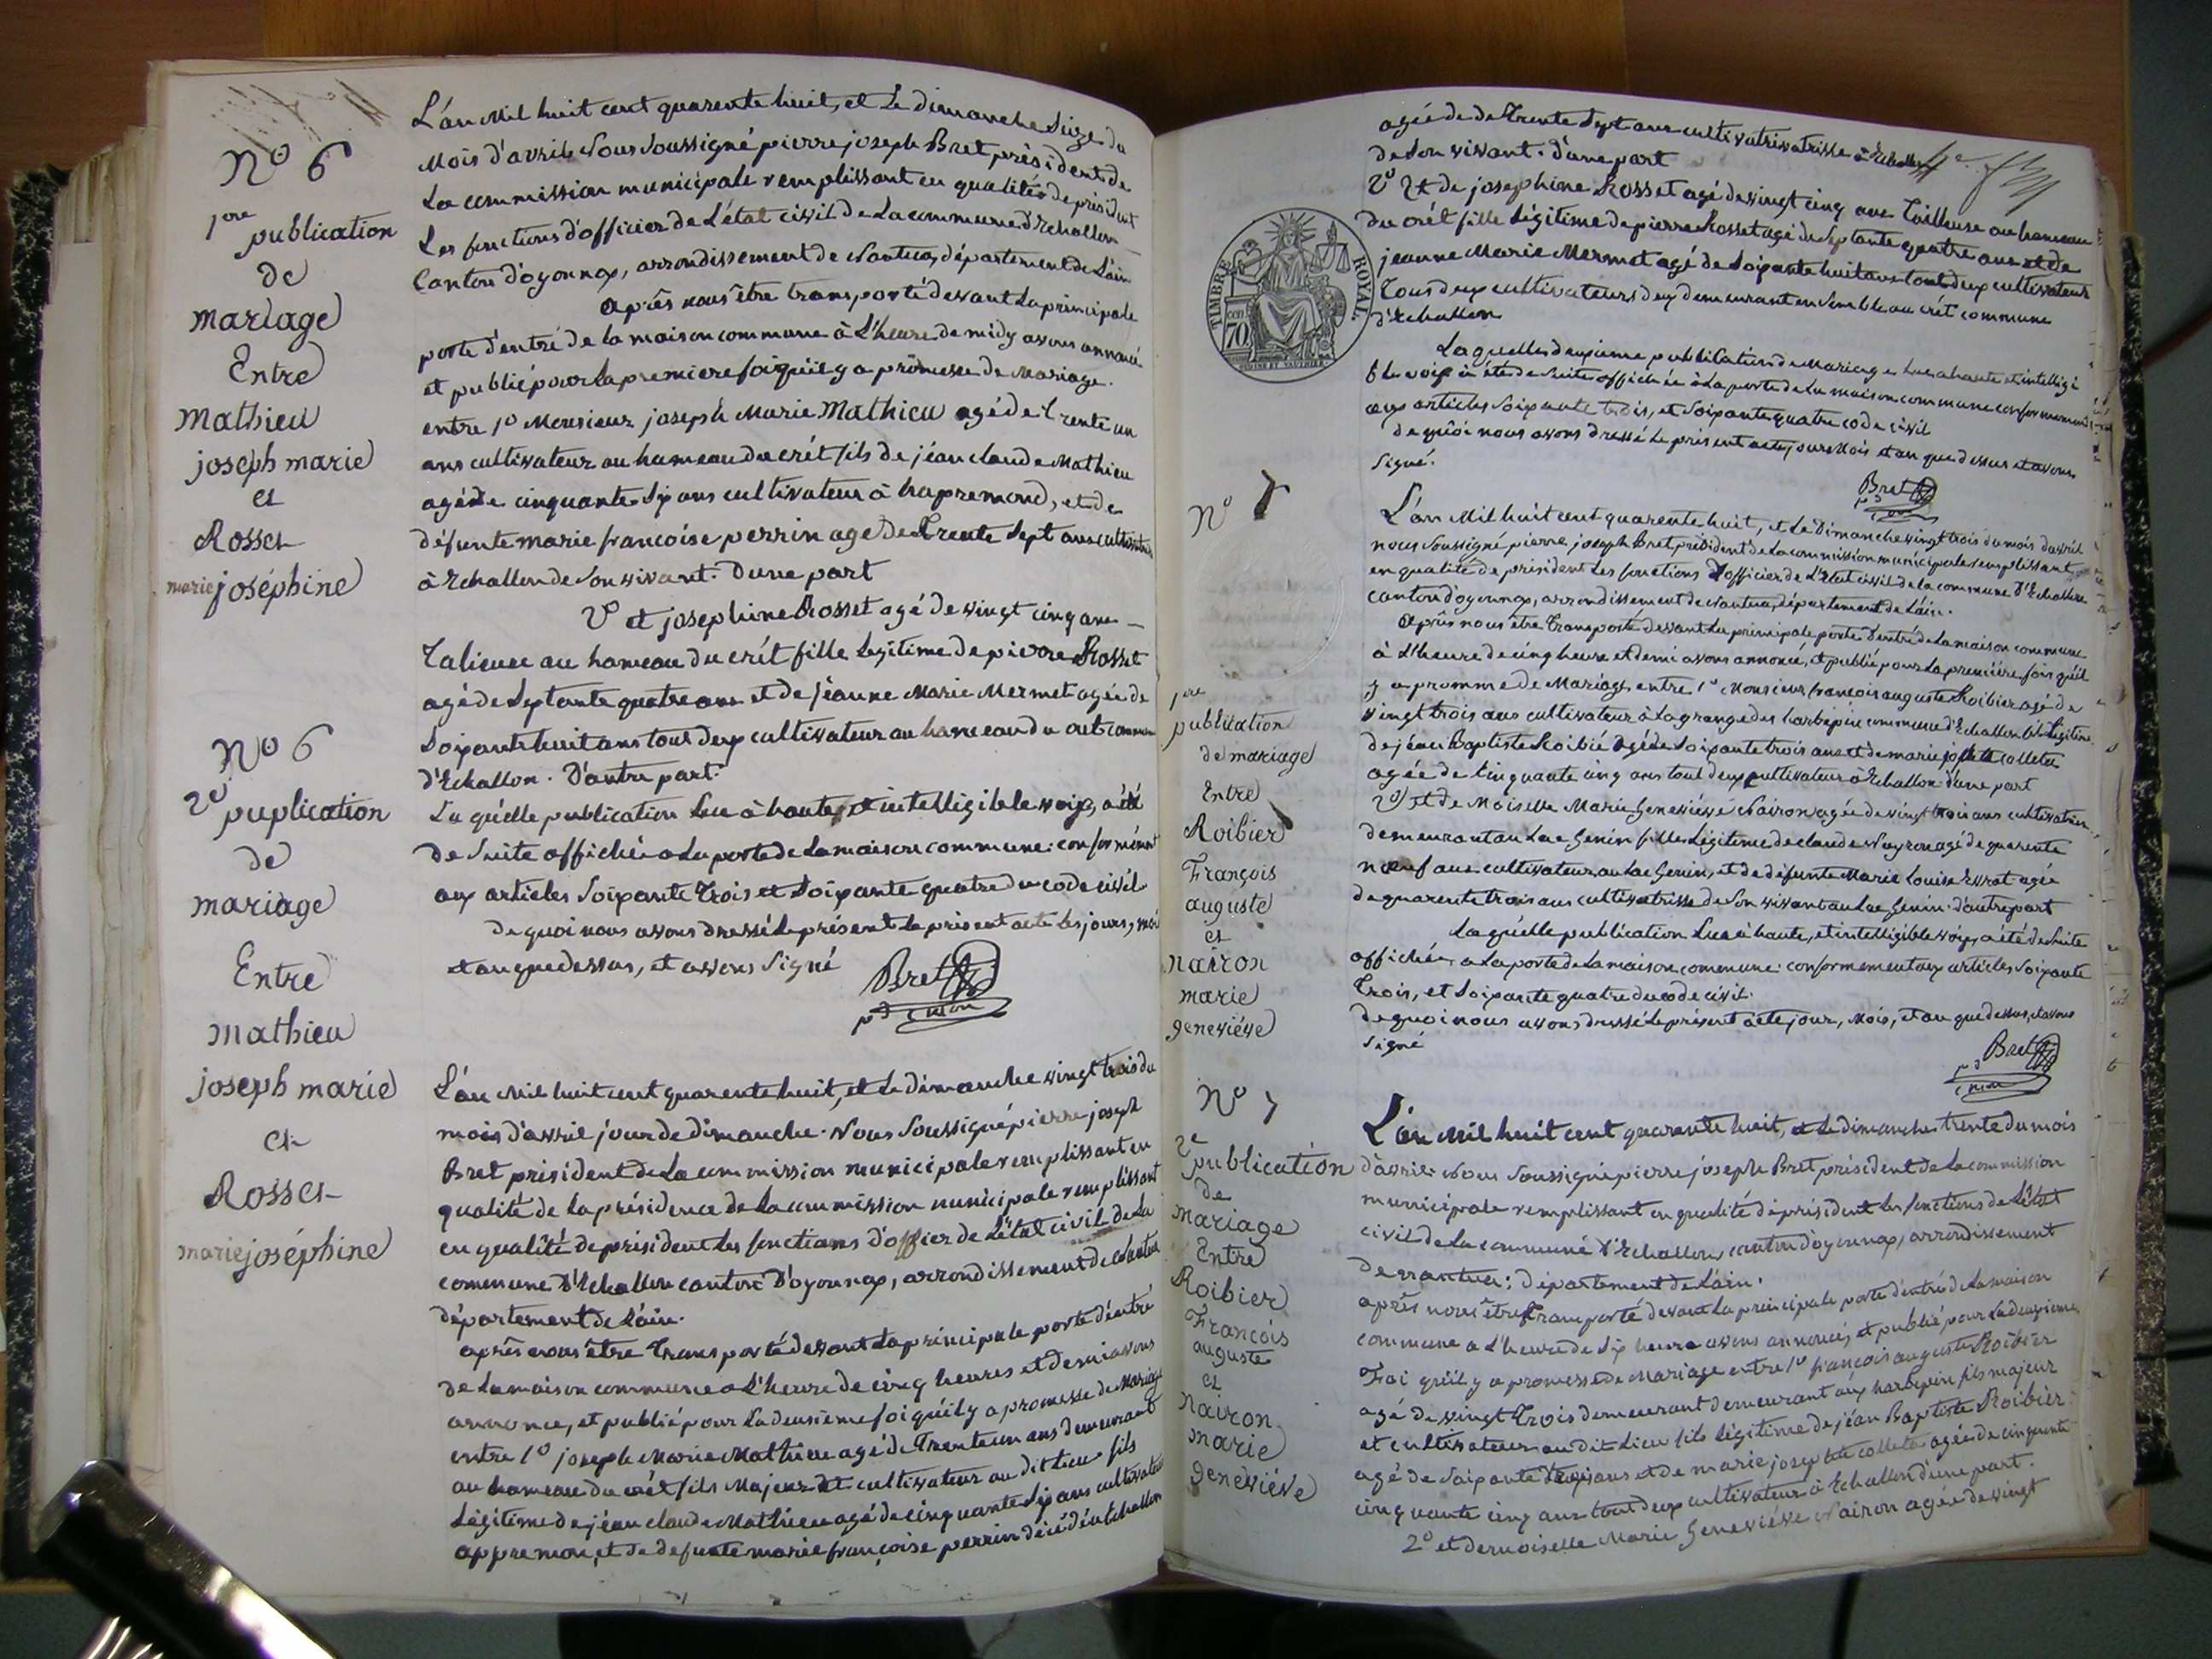 N° 6
1ere publication
de
mariage
Entre
Mathieu
joseph marie
et
Rosset
marie joséphine
L'an Mil huit cent quarente huit, et Le dimanche Seize du
Mois d'avril Nous Soussigné pierre joseph Bret président de
La commission municipale remplissant en qualité de président
Les fonctions d'officier de L'état civil de La commune d'Echallon
Canton d'oyonnax, arrondissement de Nantua, département de L'ain
après nous être transporté devant La principale
porte d'entré de la maison commune à L'heure de midy avons annoncé
et publié pour La premiere foi qu'il y a promesse de Mariage.
entre 1° Monsieur joseph Marie Mathieu agé de trente un
ans cultivateur au hameau du crét fils de jéan claude Mathieu
agé de cinquante Six ans cultivateur à hapremond, et de
défunte marie francoise perrin agé de Trente Sept ans
à Echallon de Son vivant. D'une part
2° et josephine Rosset agé de vingt cinq ans
Talieuse au hameau du crét fille Legitime de pierre Rosset
agé de Septante quatre ans et de jéanne Marie Mermet agée de
Soixante huit ans tout deux cultivateur au hameau du cret commune
d'Echallon. D'autre part.
La quélle publication Lu à haute et intelligible voix, a été
de Suite affichée a La porte de La maison commune: conformément
aux articles Soixante Trois et Soixante quatre du code civil
De quoi nous avons dressé Le présent Le présent acte les jours, moi
et an que dessus, et avons Signé
Bret
N° 6
2e puplication
de
mariage
Entre
Mathieu
joseph marie
et
Rosset
marie joséphine
L'an Mil huit cent quarente huit, et Le dimanche vingt trois du
mois d'avril jour de dimanche. Nous Soussigné pierre joseph
Bret président de La commission municipale remplissant en
qualité de La présidence de La commission municipale remplissant
en qualité de président Les fonctions d'officier de L'état civil de La
commune d'Echallon canton D'oyonnax, arrondissement de Nantua
département de L'ain.
après nous être Transporté devant La principale porte d'entré
de La maison commune a L'heure de cinq heures et demi avons
annonce, et publié pour La deusième foi qu'il y a promesse de Mariage
entre 1° joseph Marie Mathieu agé de Trente un ans demeurant
au hameau du crét fils Majeur et cultivateur au dit Lieu fils
Légitime de jéan claude Mathieu agé de cinquante Six ans cultivateur
appremon, et de defunte marie françoise perrin décédé a Echallon
agée de de Trente Sept ans à Echallon
de Son vivant. d'une part
2° Et de josephine Rosset agé de vingt cinq ans Tailleuse au hameau
du crét fille Légitime de pierre Rosset agé de Septante quatre ans et de
jeanne Marie Mermet agé de Soixante huit ans tout deux cultivateur
Tous deux cultivateurs deux demeurant ensemble au crét commune
d'Echallon
TIMBRE ROYAL.
70
La quelles deuxieme publication de Mariage Lue a haute et intelligi
ble voix à été de Suite affichée à La porte de La maison commune conformement
aux articles Soixante trois, et Soixante quatre code civil
de quoi nous avons dressé Le présent acte, jour Mois et an que dessus et avons
Signé.
Bret
N° 7
1ere
publication
de mariage
Entre
Roibier
François
auguste
et
Nairon
marie
geneviéve
L'an Mil huit cent quarente huit, et Le Dimanche vingt trois du mois d'avril
nous Soussigné pierre joseph Bret président de La commission municipale remplissant
en qualité de président Les fonctions d'officier de L'état civil de la commune d'Echallon
canton d'oyonnax, arrondissement de Nantua, département de L'ain.
Après nous être Transporté devant La principale porte d'entré de La maison commune
à L'heure de cinq heure et demi avons annoncé, et publié pour La première fois qu'il
y a promme de Mariage entre 1° Monsieur francois auguste Roibier agé de
vingt trois ans cultivateur à La grange des harbépin commune d'Echallon fils Légitime
de jéan Baptiste Roibié agé de Soixante trois ans et de marie colleta
agée de Cinquante cinq ans tout deux cultivateur a Echallon d'une part
2° et de Moiselle Marie Geneviéve Nairon agée de vingt trois ans cultivatrice
demeurant au Lac Genin fille Légitime de claude Nayron agé de quarente
neuf ans cultivateur au Lac Genin, et de défunte Marie Louise agée
de quarente trois ans cultivatrisse de Son vivant au Lac Genin. d'autre part
La quélle publication Lue à haute, et intelligible voix, a été de Suite
affichée a La porte de La maison commune: conformement aux articles Soixante
Trois, et Soixante quatre du code civil.
de quoi nous avons dressé Le présent acte jour, Mois, et an que dessus, et avons
Signé
Bret
N° 7
2e
publication
de
mariage
Entre
Roibier
François
auguste
et
Nairon
marie
geneviéve
L'an Mil huit cent quarente huit, et Le dimanche trente du mois
d'avril. Nous Soussigné pierre joseph Bret président de La commission
municipale remplissant en qualité de président Les fonctions de L'état
civil de La commune d'Echallon, canton d'oyonnax, arrondissement
de nantua: département de L'ain.
après nous être Transporté devant La principale porte d'entré de La maison
commune a L'heure de Six heure avons annoncé, et publié pour La deuxieme
Foi qu'il y a promesse de Mariage entre 1° françois auguste Roibier
agé de vingt Trois demeurant demeurant aux harbepin fils majeur
et cultivateur au dit Lieu fils Légitime de jéan Baptiste Roibier
agé de Soixante trois ans et de marie colleta agée de cinquente
cinquante cinq ans tout deux cultivateur à Echallon d'une part.
2° et demoiselle Marie Geneviéve Nairon agée de vingt